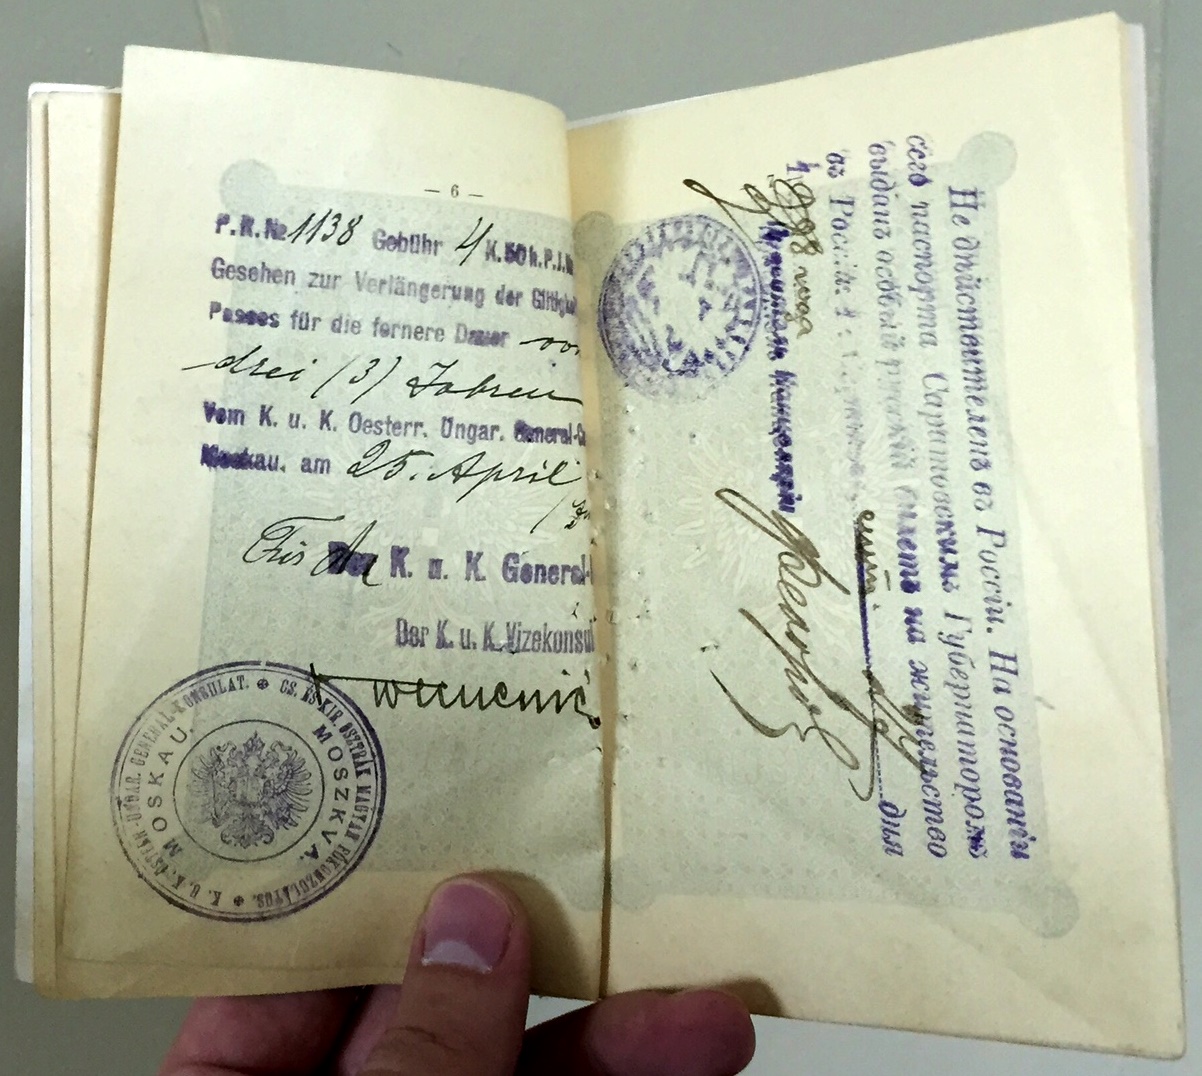 — 6 —
P.R.№ 1138 Gebühr 4 K.50 h.P.J.
Gesehen zur Verlängerung der Giltigk
Passes für die fernere Dauer von
drei (3) Jahren
Vom K. u. K. Oesterr. Ungar. General-C
Moskau. am 25. April
Für den
Der K. u. K. General-
Der K. u. K. Vizekonsul
K. U. K. ÖSTERR.-UNGAR. GENERAL-KONSULAT.
CS. ÉS KIR. OSZTRÁK MAGYAR FŐKONZULÁTUS.
MOSKAU.
MOSZKVA.
Не дѣйствителенъ въ Россіи. На основаніи
сего паспорта Саратовскимъ Губернаторомъ
выданъ особый русскій билетъ на жительство
въ Россіи дня
1908 года
Правитель Канцеляріи